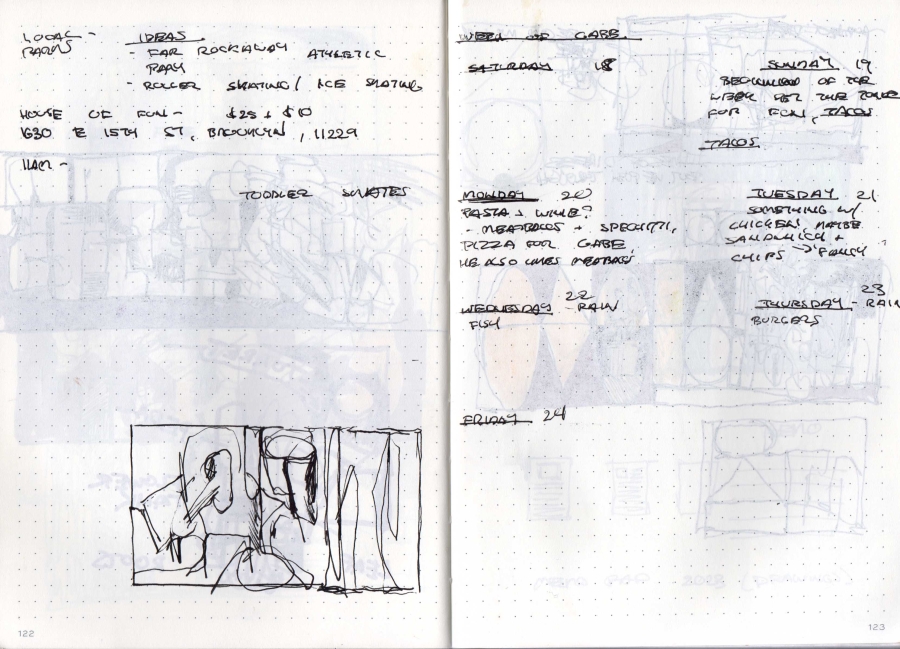 LOCAL -
PARKS
IDEAS
- FAR ROCKAWAY ATHLETIC
PARK
- ROLLER SKATING / ICE SKATING
HOUSE OF FUN - $25 + $10
1630 E 15TH ST, BROOKLYN, 11229
11AM -
TODDLER SKATES
122
WEEK OF GABE
SATURDAY 18
SUNDAY 19
BEGINNING OF THE
WEEK GET THE
FOR FUN, TACOS
TACOS
MONDAY 20
PASTA & WINE?
- MEATBALLS + SPEGHTTI,
PIZZA FOR GABE,
HE ALSO LIKES MEATBALLS
TUESDAY 21
SOMETHING W/
CHICKEN, MAYBE
SANDWICH +
CHIPS → FAMILY
WEDNESDAY 22 - RAIN
FISH
THURSDAY 23 - RAIN
BURGERS
FRIDAY 24
123